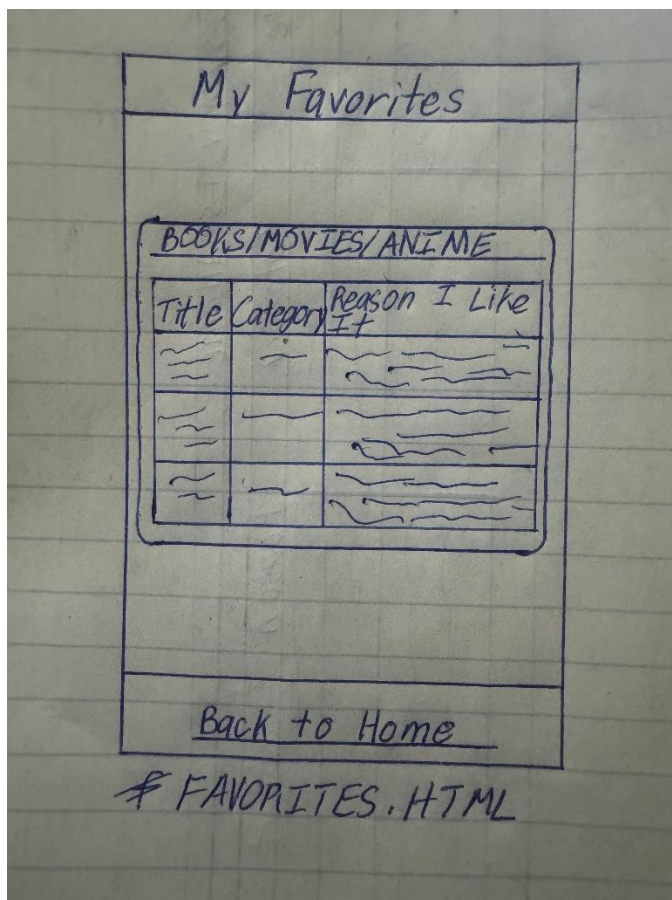 My Favorites
BOOKS/MOVIES/ANIME
Title Category Reason I Like It
Back to Home
* FAVORITES.HTML